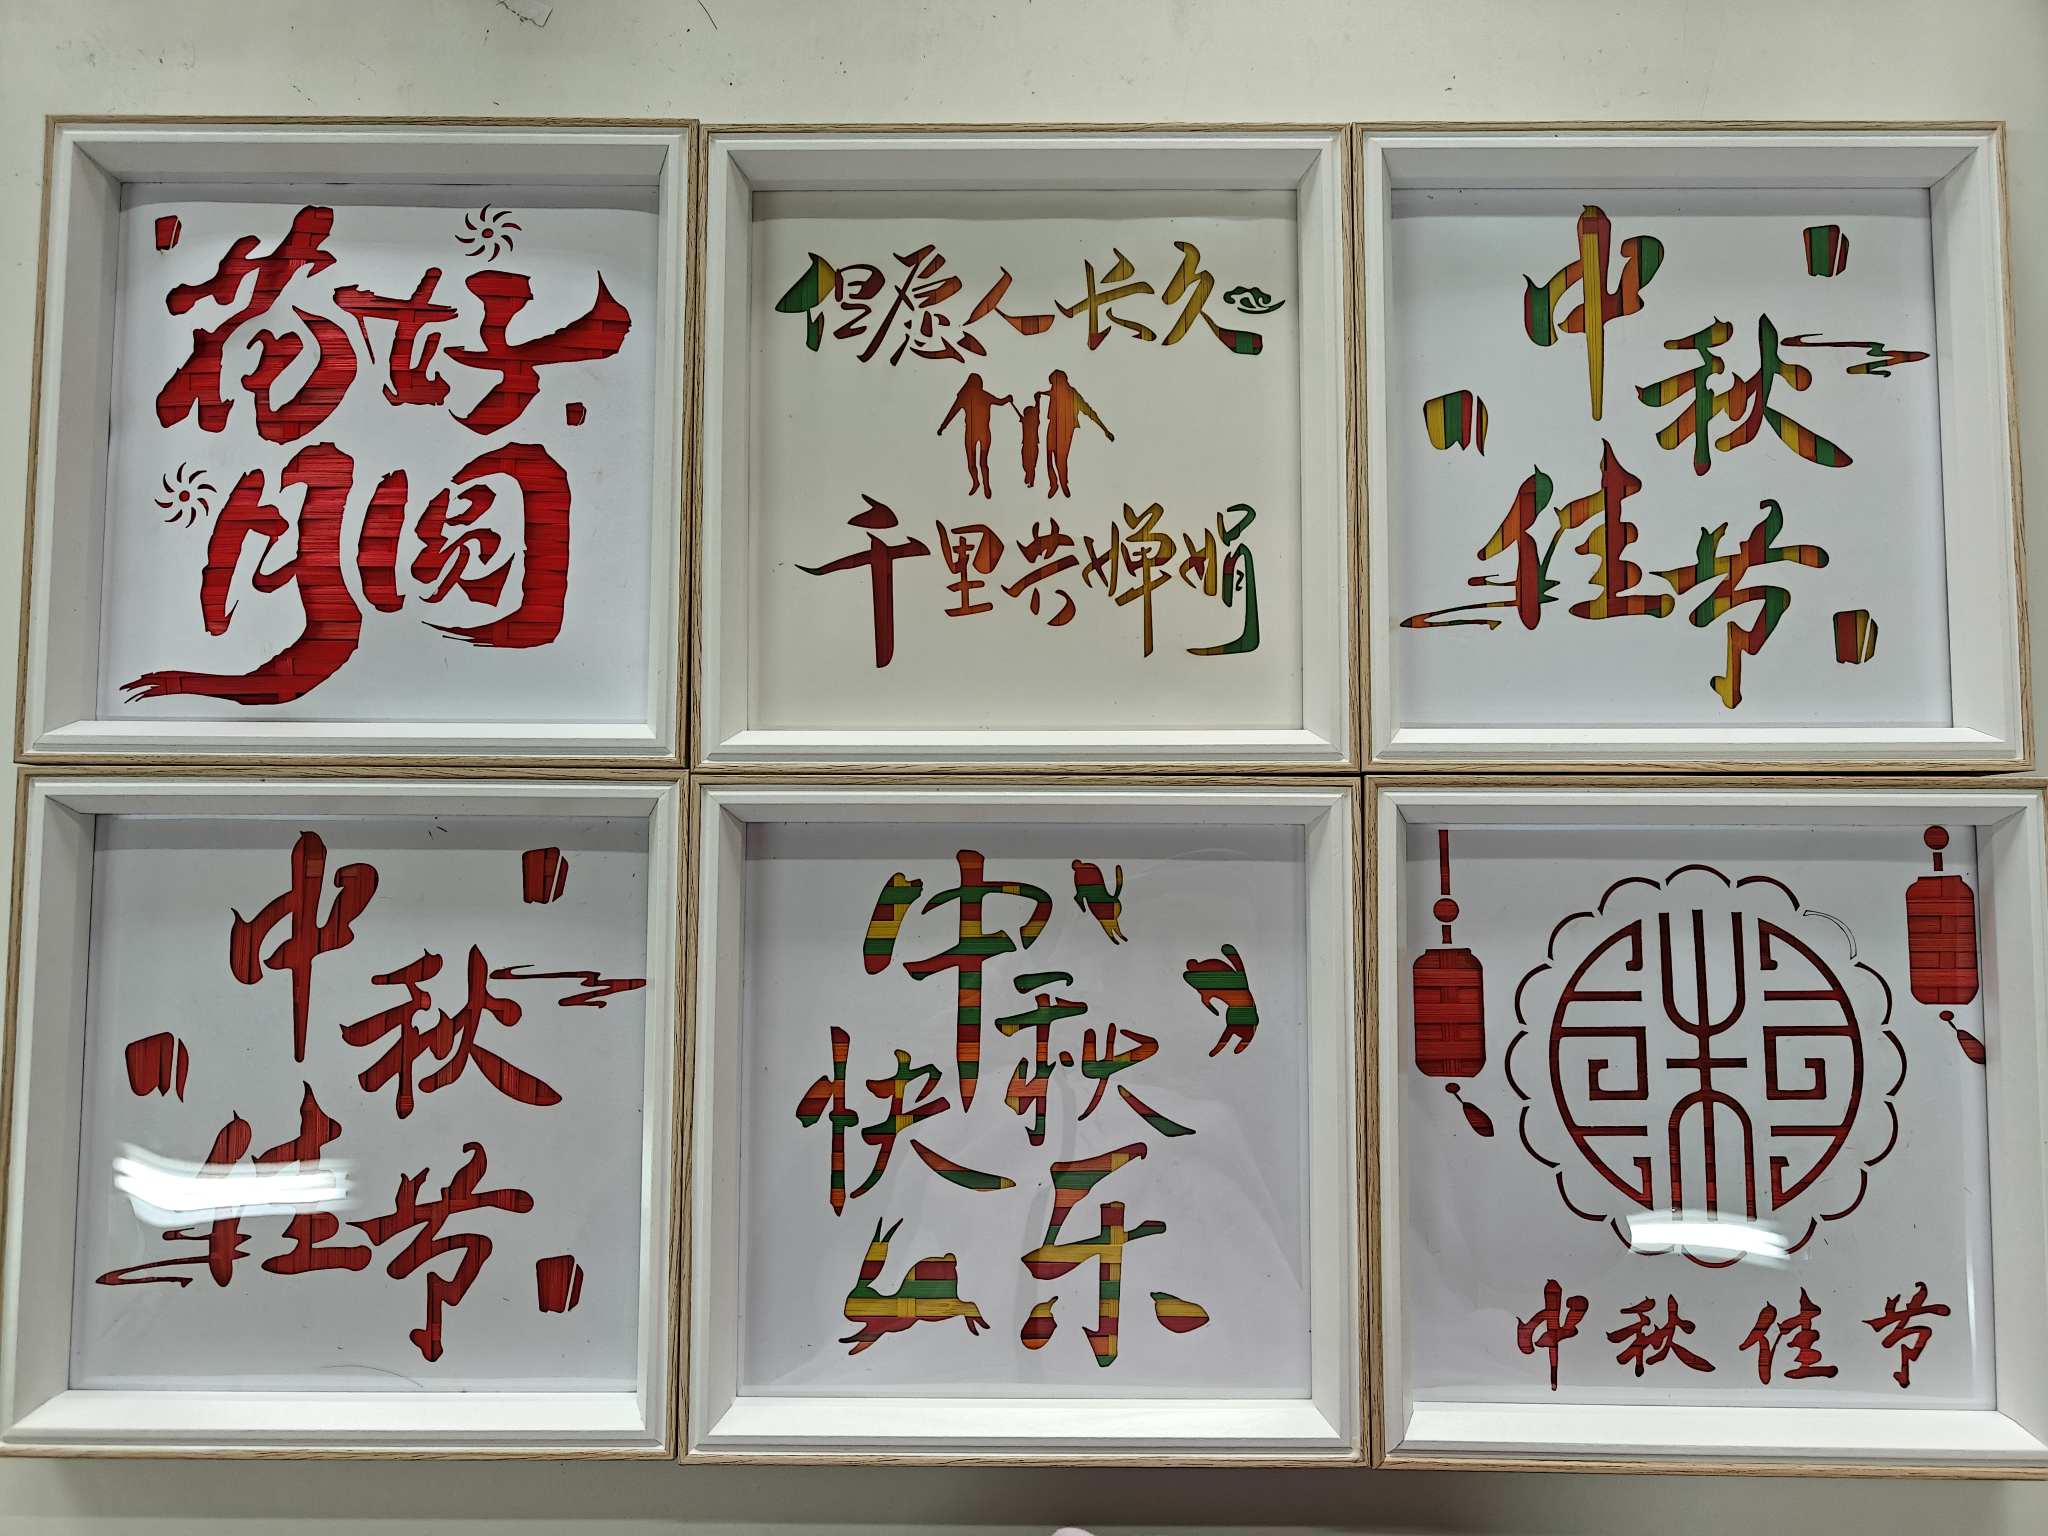 花好
月圆
但愿人长久
千里共婵娟
中秋
佳节
中秋
佳节
中秋
快乐
中秋佳节